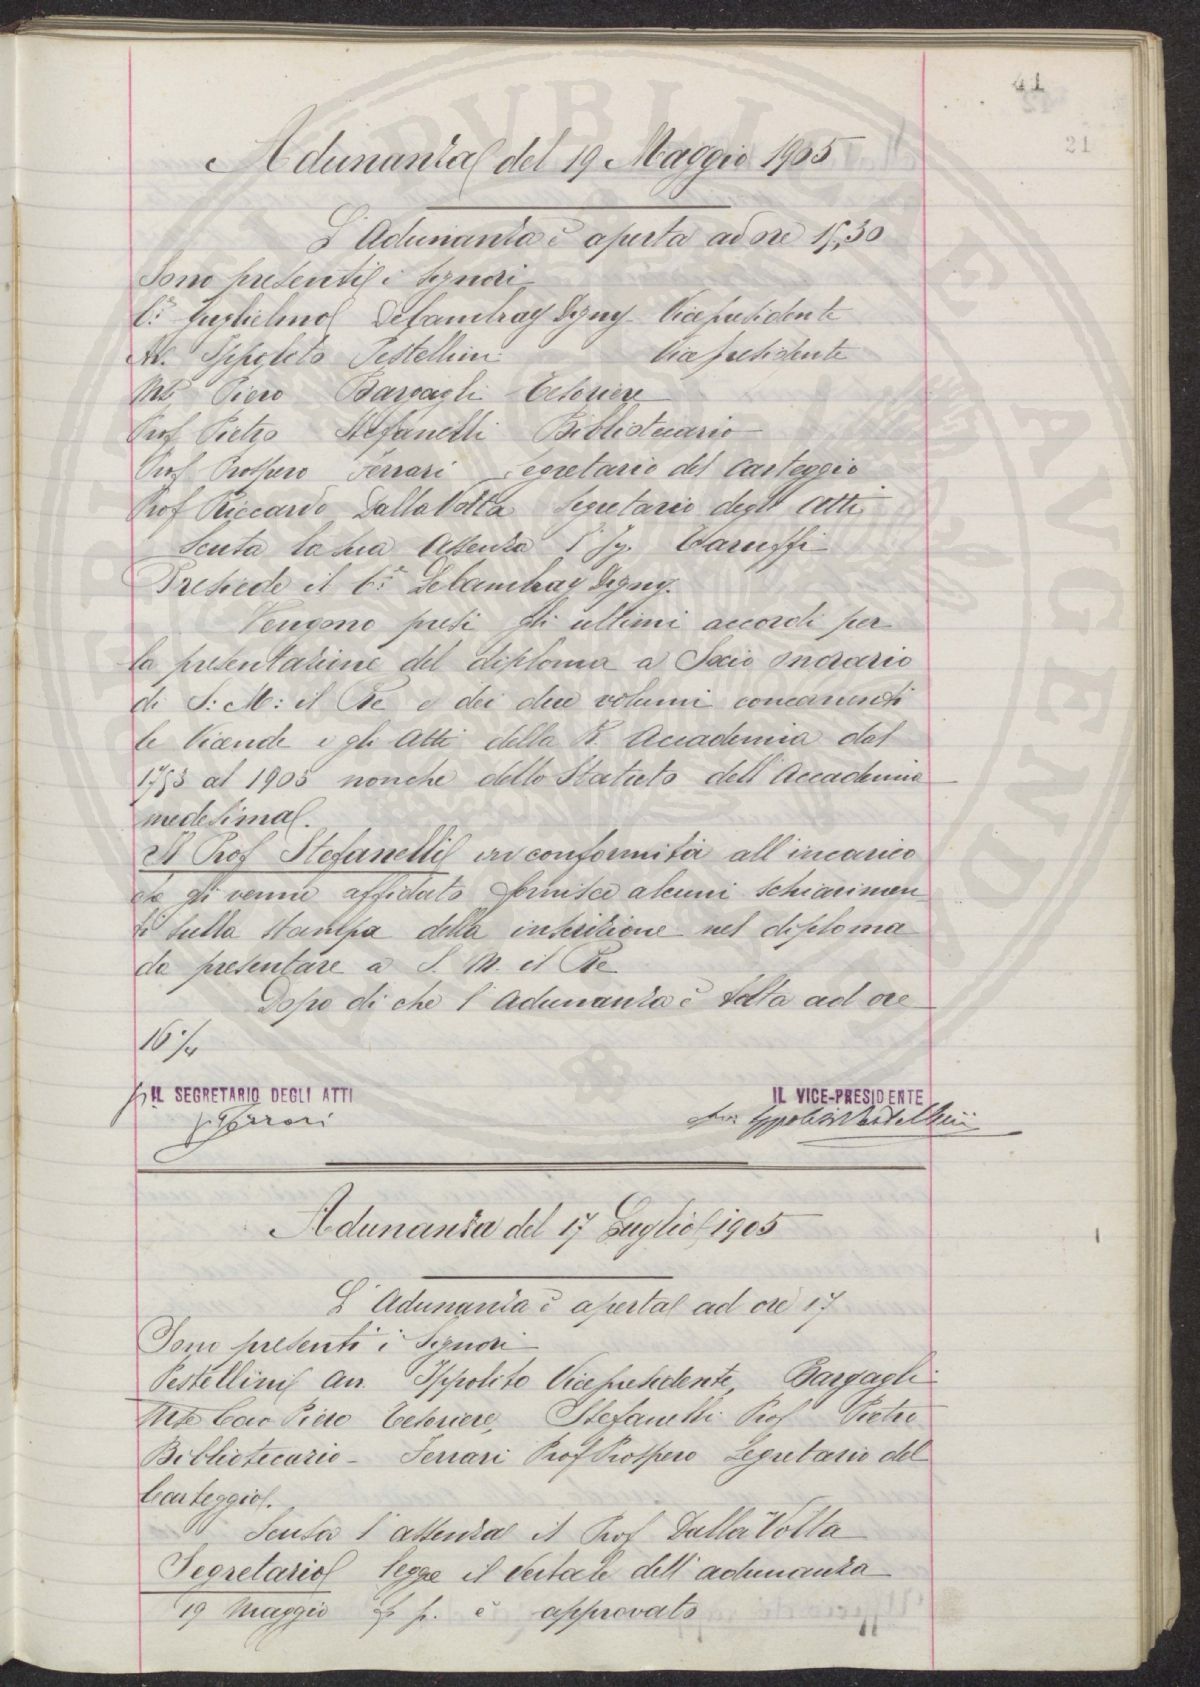 41
21
Adunanza del 19 Maggio 1905
L'Adunanza è aperta ad ore 15,30
Sono presenti i signori
Guglielmo DeCambray Digny Vicepresidente
Av. Ippolito Pestellini Vicepresidente
Mse Piero Bargagli Tesoriere
Prof Pietro Stefanelli Bibliotecario
Prof Prospero Ferrari Segretario del Carteggio
Prof Riccardo Dalla Volta Segretario degli Atti
Scusa la sua Assenza l'Ig. Caruffi
Presiede il DeCambray Digny.
Vengono presi gli ultimi accordi per
la presentazione del diploma a Socio onorario
di S: M: il Re e dei due volumi concernenti
le Vicende e gli Atti della R. Accademia dal
1753 al 1905 nonche dello Statuto dell'Accademia
medesima.
Il Prof Stefanelli in conformità all'incarico
che gli venne affidato fornisce alcuni schiarimen
ti sulla stampa della inscrizione nel diploma
da presentare a S. M. il Re
Dopo di che l'adunanza è tolta ad ore
16 1/4
p. IL SEGRETARIO DEGLI ATTI
IL VICE-PRESIDENTE
P. Ferrari
Ippolito Pestellini
Adunanza del 17 Luglio 1905
L'Adunanza è aperta ad ore 17
Sono presenti i Signori
Pestellini avv. Ippolito Vicepresidente, Bargagli
Mse Cav Piero Tesoriere, Stefanelli Prof Pietro
Bibliotecario - Ferrari Prof Prospero Segretario del
Carteggio.
Scusa l'assenza il Prof Dalla Volta
Segretario legge il verbale dell'adunanza
19 Maggio p. p. è approvato